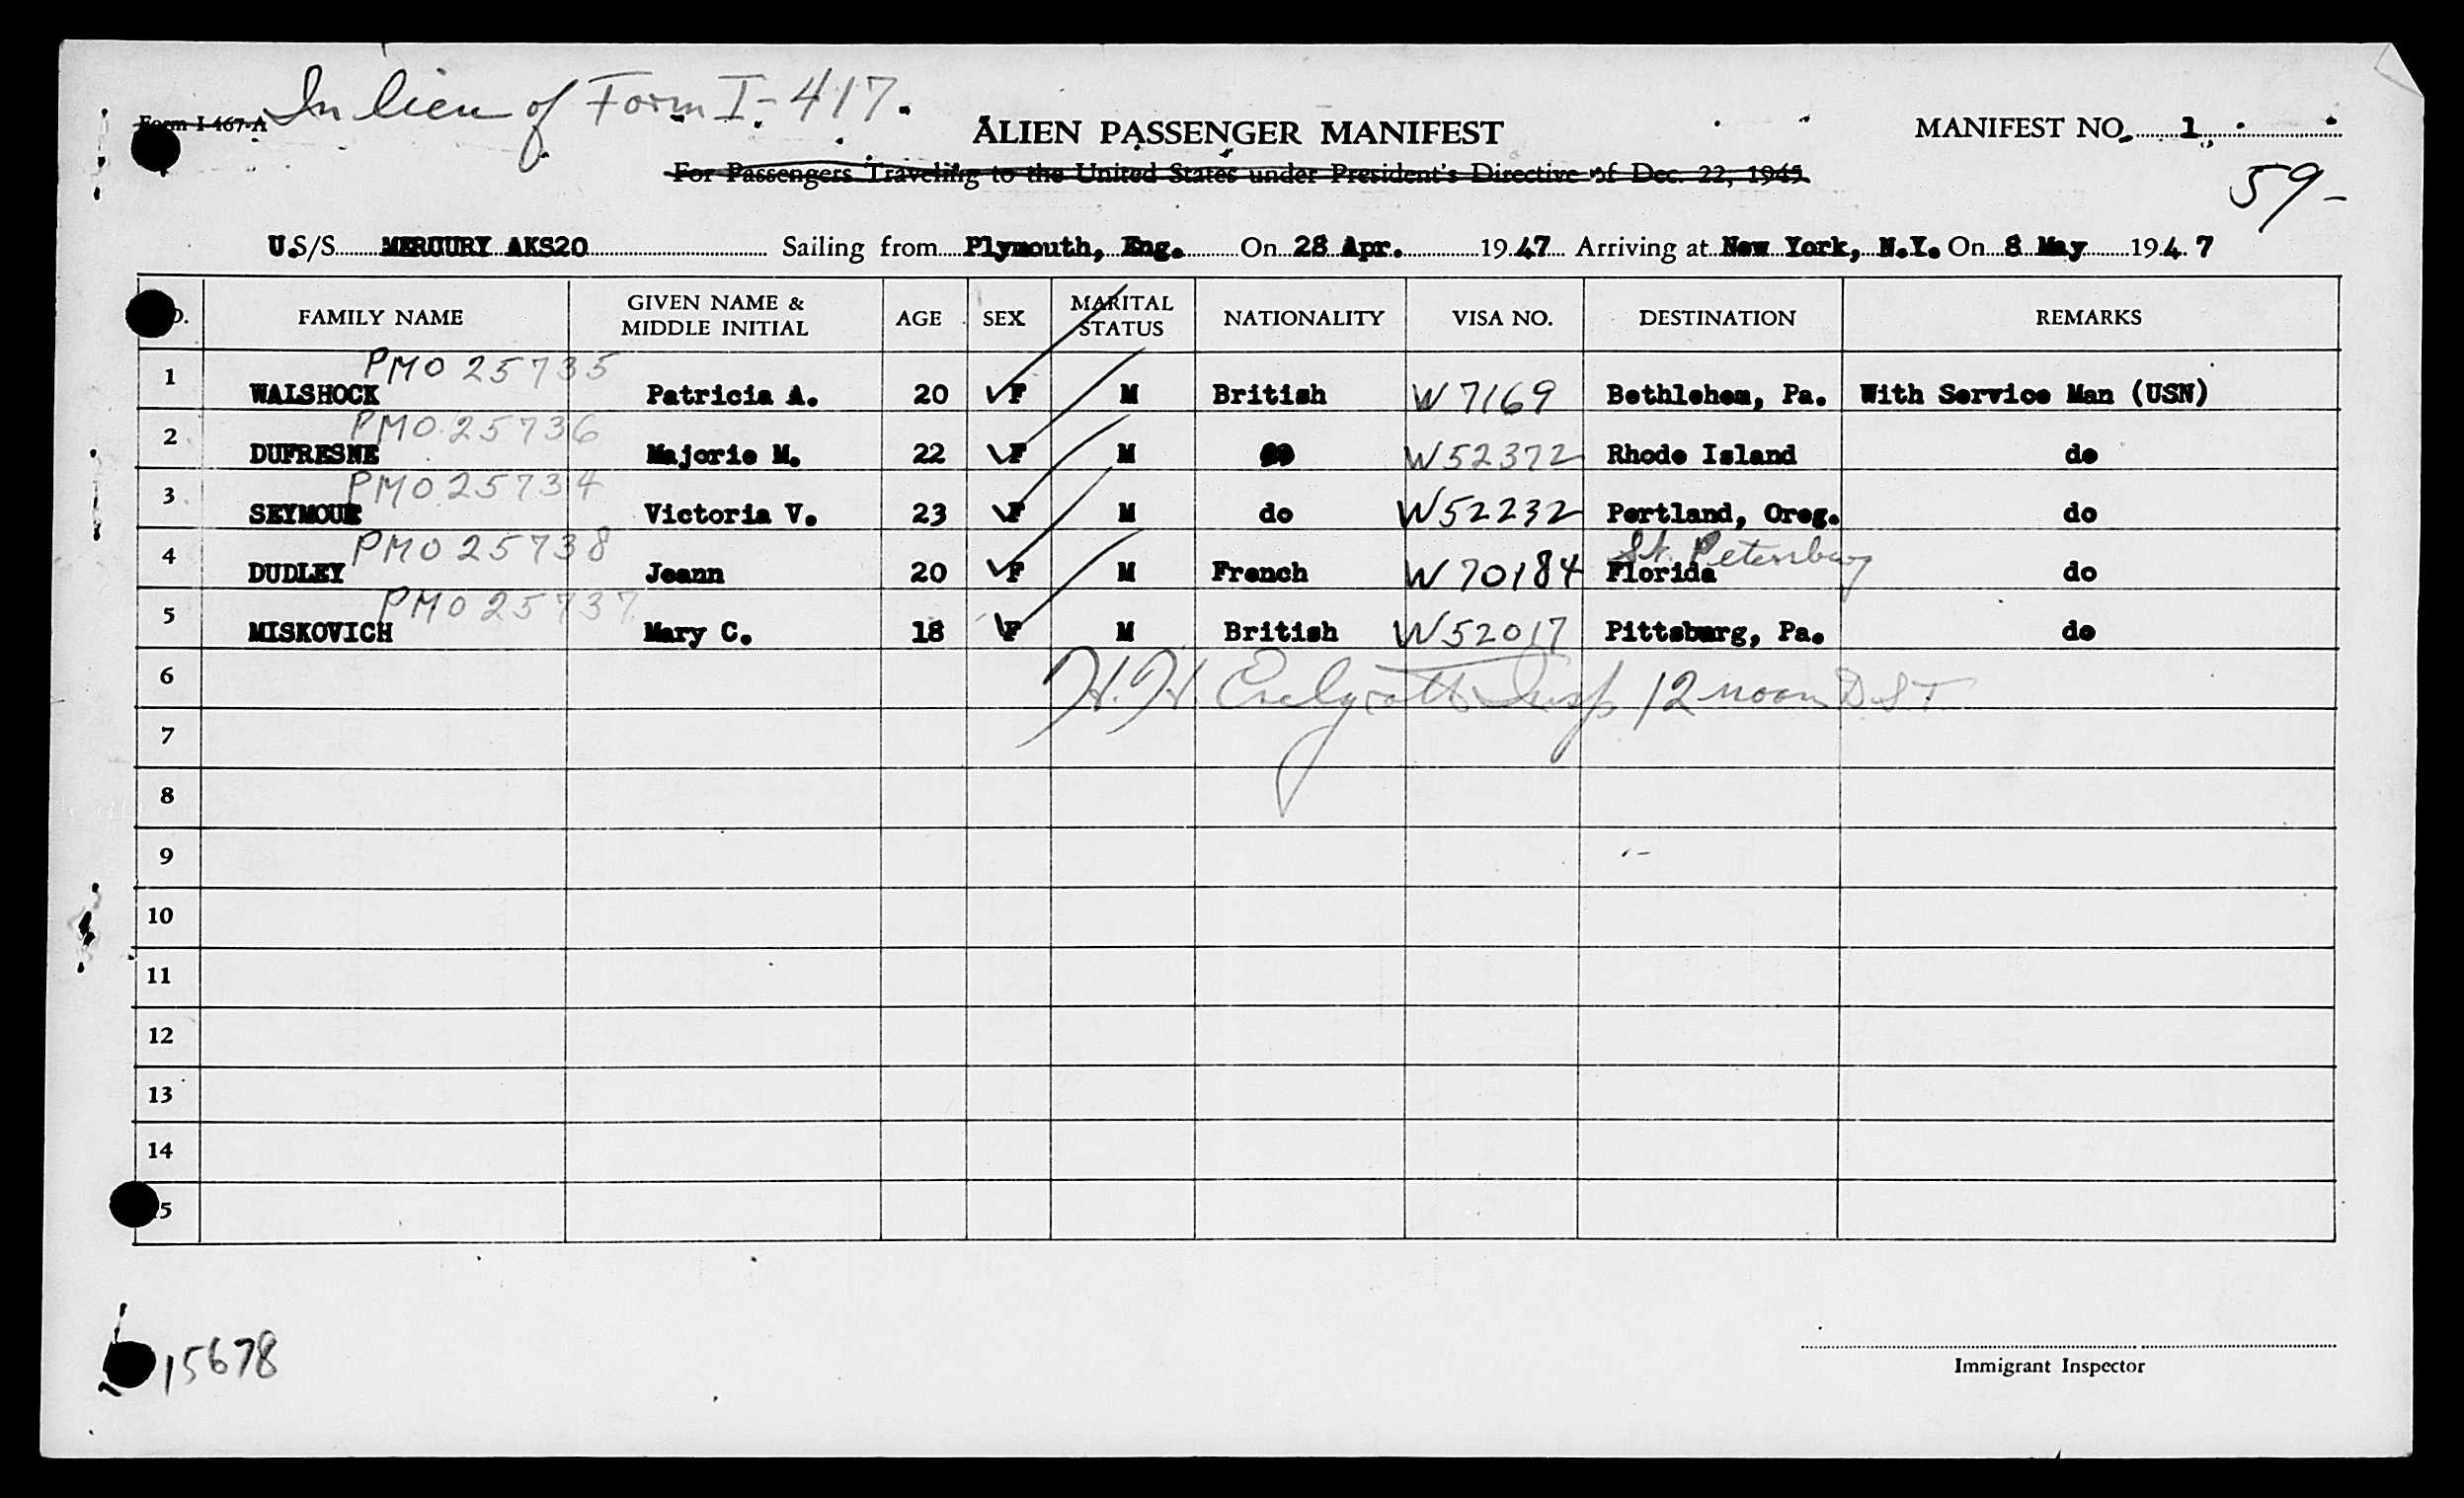 In lieu of Form I-417.
Form I-467-A
ALIEN PASSENGER MANIFEST
MANIFEST NO. 1
For Passengers Traveling to the United States under President's Directive of Dec. 22, 1945
59-
U.S/S MERCURY AKS20 Sailing from Plymouth, Eng. On 28 Apr. 1947 Arriving at New York, N.Y. On 8 May 1947
FAMILY NAME GIVEN NAME & MIDDLE INITIAL AGE SEX MARITAL STATUS NATIONALITY VISA NO. DESTINATION REMARKS
PMO 25735
1 WALSHOCK Patricia A. 20 F M British W 7169 Bethlehem, Pa. With Service Man (USN)
PMO 25736
2 DUFRESNE Majorie M. 22 F M do W52372 Rhode Island do
PMO 25734
3 SEYMOUR Victoria V. 23 F M do W52232 Portland, Oreg. do
PMO 25738 St. Petersburg
4 DUDLEY Jeann 20 F M French W 70184 Florida do
PMO 25737
5 MISKOVICH Mary C. 18 F M British W52017 Pittsburg, Pa. do
6 H.H. Insp 12 noon DST
7
8
9
10
11
12
13
14
5
15678
Immigrant Inspector